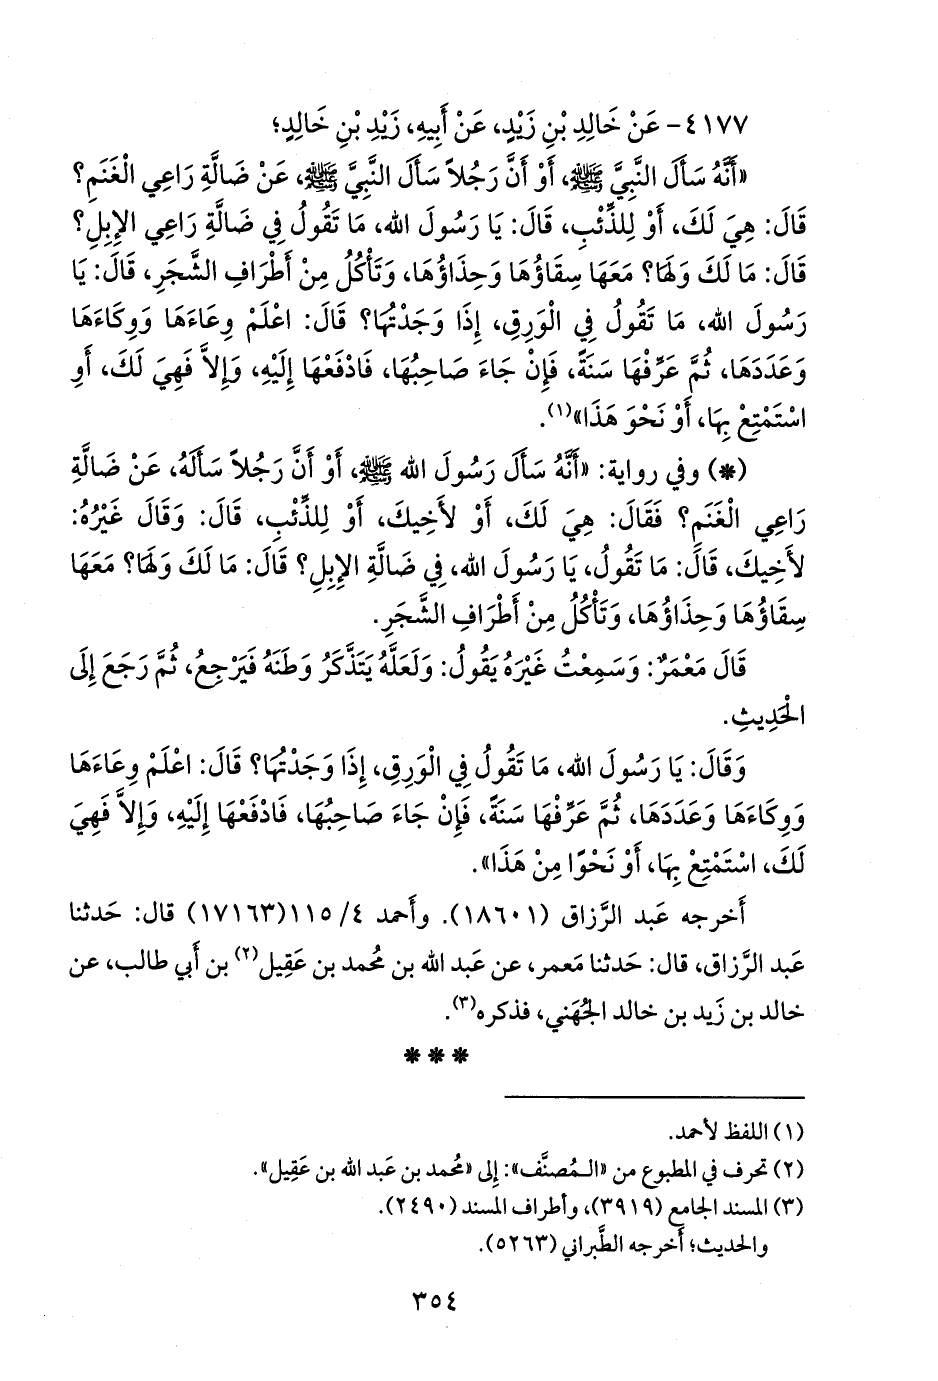 ٤١٧٧- عَنْ خَالِدِ بْنِ زَيْدٍ، عَنْ أَبِيهِ، زَيْدِ بْنِ خَالِدٍ؛
«أَنَّهُ سَأَلَ النَّبِيَّ ﷺ، أَوْ أَنَّ رَجُلاً سَأَلَ النَّبِيَّ ﷺ، عَنْ ضَالَّةِ رَاعِي الْغَنَمِ؟
قَالَ: هِيَ لَكَ، أَوْ لِلذِّئْبِ، قَالَ: يَا رَسُولَ الله، مَا تَقُولُ فِي ضَالَّةِ رَاعِي الإِبِلِ؟
قَالَ: مَا لَكَ وَلَهَا؟ مَعَهَا سِقَاؤُهَا وَحِذَاؤُهَا، وَتَأْكُلُ مِنْ أَطْرَافِ الشَّجَرِ، قَالَ: يَا
رَسُولَ الله، مَا تَقُولُ فِي الْوَرِقِ، إِذَا وَجَدْتُهَا؟ قَالَ: اعْلَمْ وِعَاءَهَا وَوِكَاءَهَا
وَعَدَدَهَا، ثُمَّ عَرِّفْهَا سَنَةً، فَإِنْ جَاءَ صَاحِبُهَا، فَادْفَعْهَا إِلَيْهِ، وَإِلاَّ فَهِيَ لَكَ، أَوِ
اسْتَمْتِعْ بِهَا، أَوْ نَحْوَ هَذَا»(١).
(*) وفي رواية: «أَنَّهُ سَأَلَ رَسُولَ الله ﷺ، أَوْ أَنَّ رَجُلاً سَأَلَهُ، عَنْ ضَالَّةِ
رَاعِي الْغَنَمِ؟ فَقَالَ: هِيَ لَكَ، أَوْ لأَخِيكَ، أَوْ لِلذِّئْبِ، قَالَ: وَقَالَ غَيْرُهُ:
لأَخِيكَ، قَالَ: مَا تَقُولُ، يَا رَسُولَ الله، فِي ضَالَّةِ الإِبِلِ؟ قَالَ: مَا لَكَ وَلَهَا؟ مَعَهَا
سِقَاؤُهَا وَحِذَاؤُهَا، وَتَأْكُلُ مِنْ أَطْرَافِ الشَّجَرِ.
قَالَ مَعْمَرٌ: وَسَمِعْتُ غَيْرَهُ يَقُولُ: وَلَعَلَّهُ يَتَذَكَّرُ وَطَنَهُ فَيَرْجِعُ، ثُمَّ رَجَعَ إِلَى
الْحَدِيثِ.
وَقَالَ: يَا رَسُولَ الله، مَا تَقُولُ فِي الْوَرِقِ، إِذَا وَجَدْتُهَا؟ قَالَ: اعْلَمْ وِعَاءَهَا
وَوِكَاءَهَا وَعَدَدَهَا، ثُمَّ عَرِّفْهَا سَنَةً، فَإِنْ جَاءَ صَاحِبُهَا، فَادْفَعْهَا إِلَيْهِ، وَإِلاَّ فَهِيَ
لَكَ، اسْتَمْتِعْ بِهَا، أَوْ نَحْوًا مِنْ هَذَا».
أَخرجه عَبد الرَّزاق (١٨٦٠١). وأَحمد ٤/ ١١٥(١٧١٦٣) قال: حَدثنا
عَبد الرَّزاق، قال: حَدثنا مَعمر، عن عَبد الله بن مُحمد بن عَقِيل(٢) بن أَبي طالب، عن
خالد بن زَيد بن خالد الجُهَني، فذكره(٣).
* * *
(١) اللفظ لأحمد.
(٢) تحرف في المطبوع من «الـمُصنَّف»: إِلى «مُحمد بن عَبد الله بن عَقِيل».
(٣) المسند الجامع (٣٩١٩)، وأطراف المسند (٢٤٩٠).
والحديث؛ أَخرجه الطَّبراني (٥٢٦٣).
٣٥٤